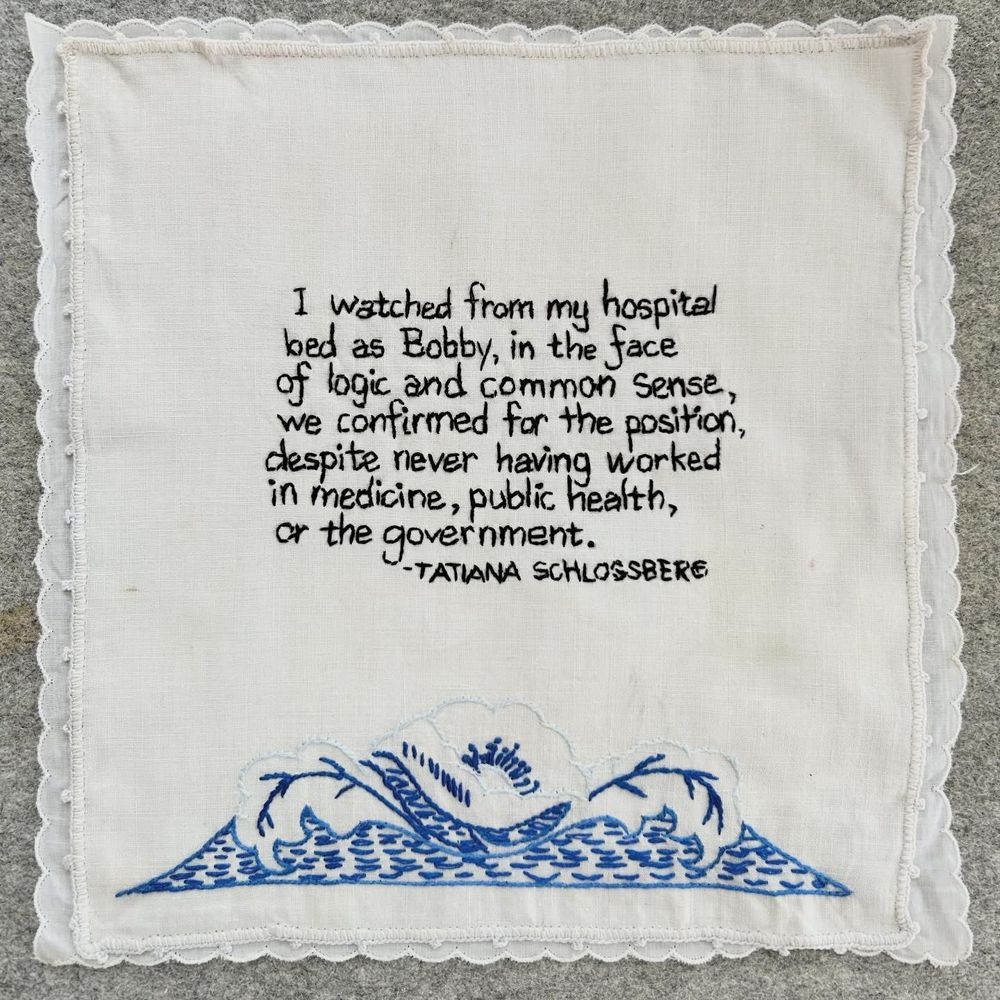 I watched from my hospital
bed as Bobby, in the face
of logic and common sense,
we confirmed for the position,
despite never having worked
in medicine, public health,
or the government.
-TATIANA SCHLOSSBERG